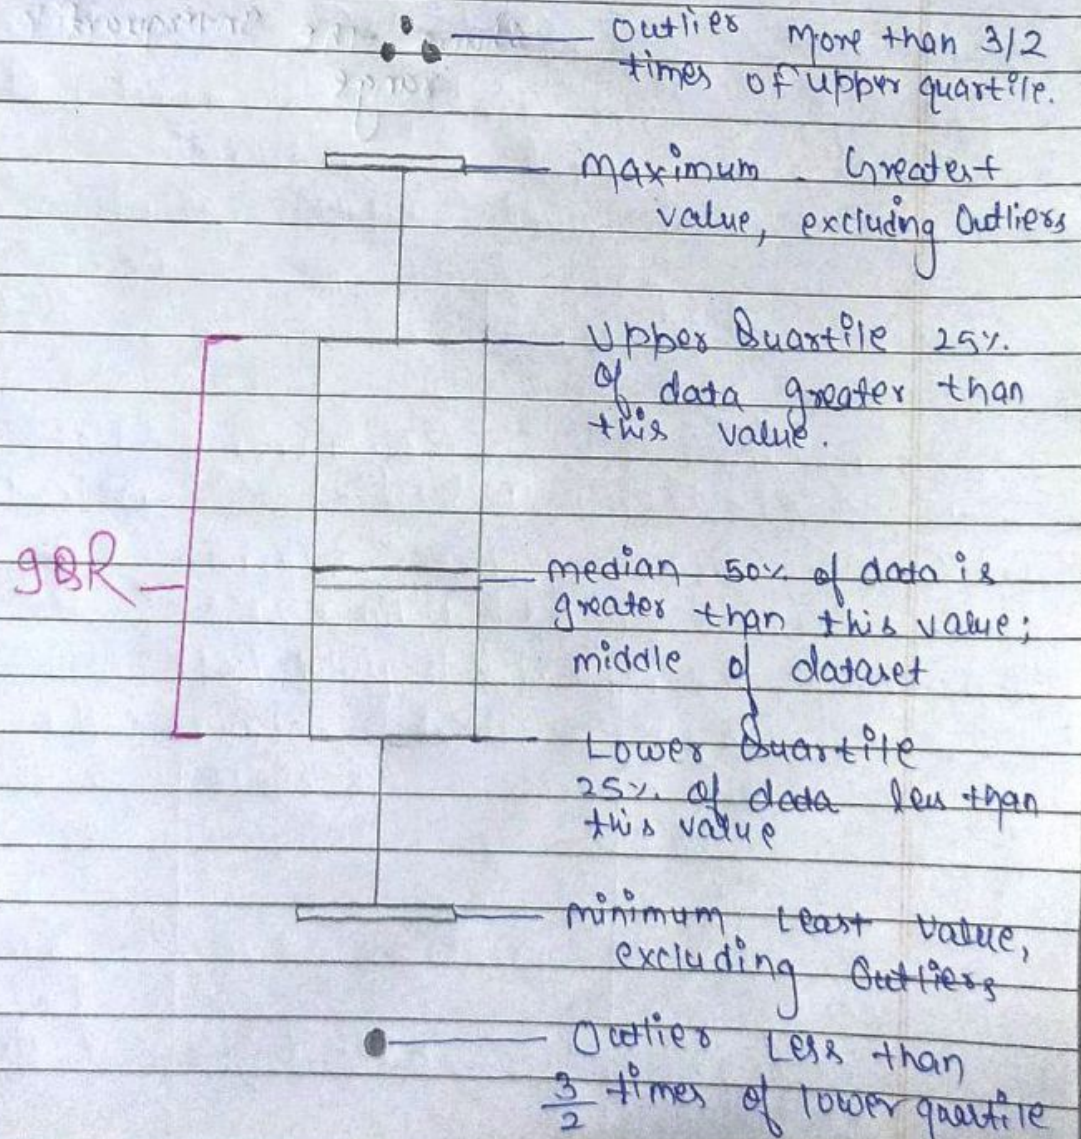 Outlier More than 3/2
times of upper quartile.
Maximum - Greatest
value, excluding Outliers
Upper Quartile 25%
of data greater than
this value.
IQR
median 50% of data is
greater than this value;
middle of dataset
Lower Quartile
25% of data less than
this value
minimum Least value,
excluding Outliers
Outlier Less than
3/2 times of lower quartile